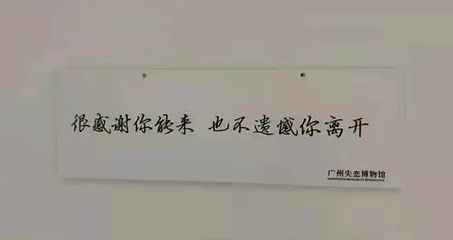 很感谢你能来 也不遗憾你离开
广州失恋博物馆